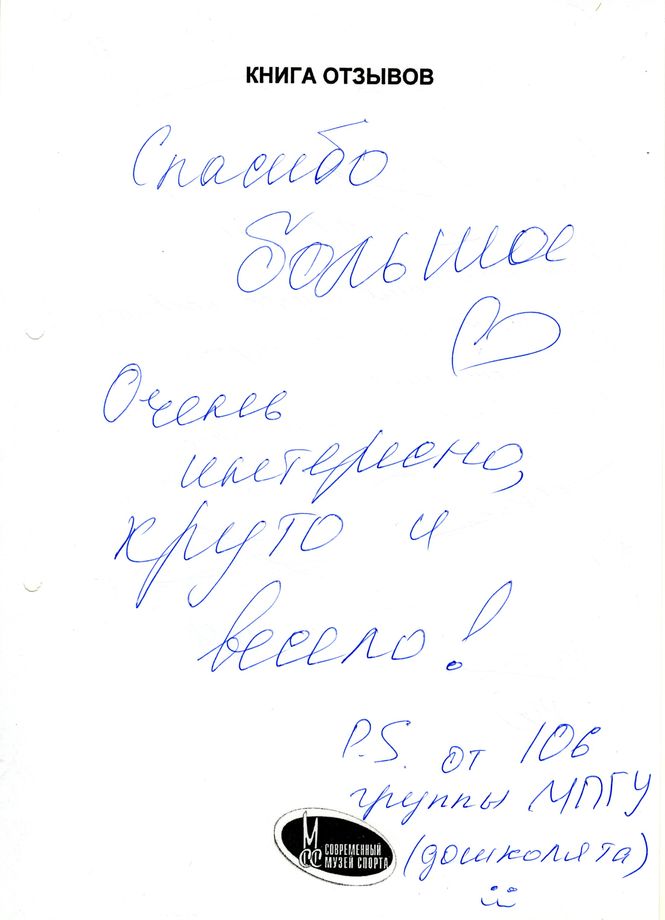 КНИГА ОТЗЫВОВ
Спасибо
большое
Очень
интересно,
круто и
весело!
P.S. от 106
группы МПГУ
(дошколята)
МСС СОВРЕМЕННЫЙ
МУЗЕЙ СПОРТА